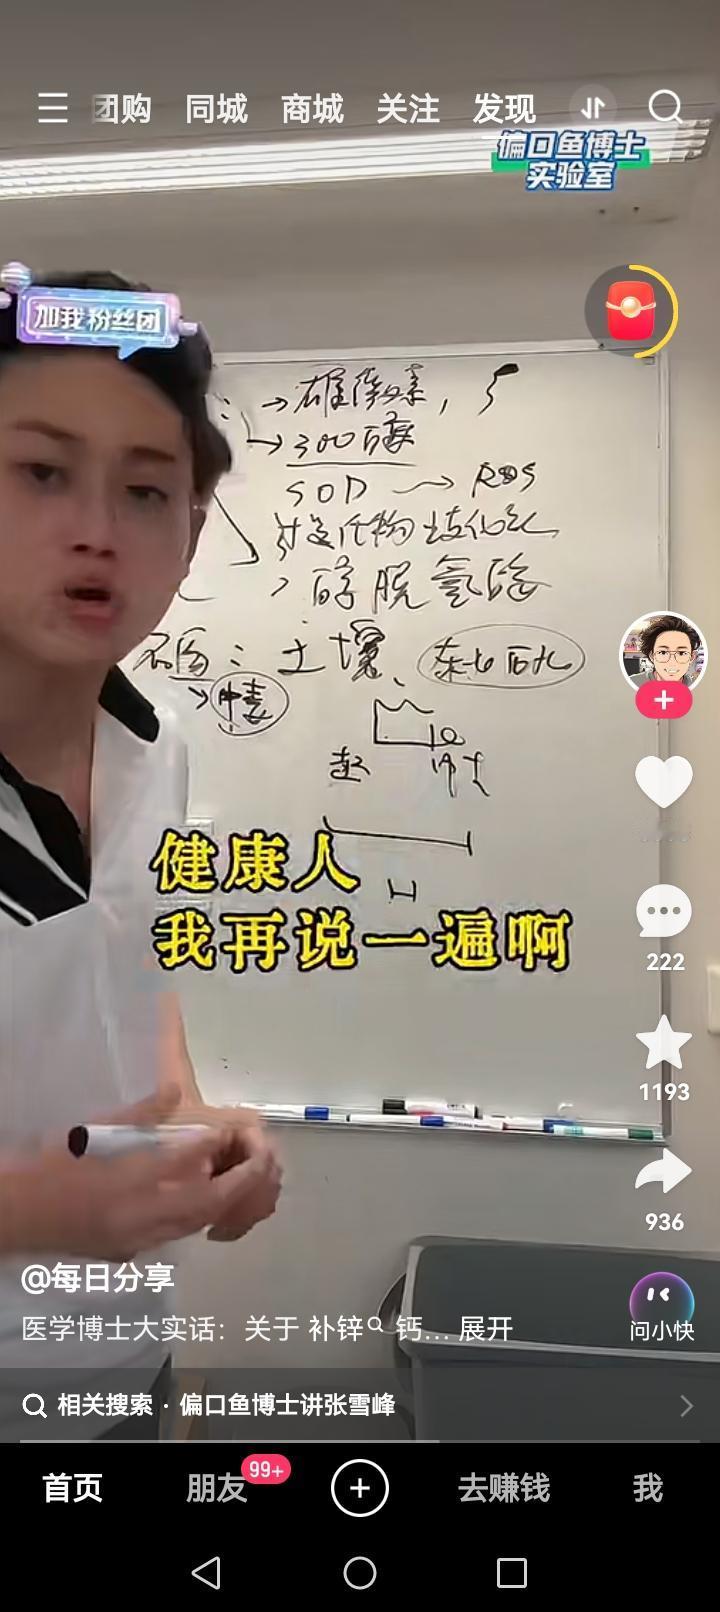 团购 同城 商城 关注 发现
偏口鱼博士
实验室
加我粉丝团
→雄激素,
→300百酶
SOD → ROS
过氧化物歧化酶
醇脱氢酶
硒: 土壤、
→中毒
健康人
我再说一遍啊
222
1193
936
@每日分享
医学博士大实话：关于 补锌 钙... 展开
问小快
相关搜索 · 偏口鱼博士讲张雪峰
首页 朋友 99+ 去赚钱 我